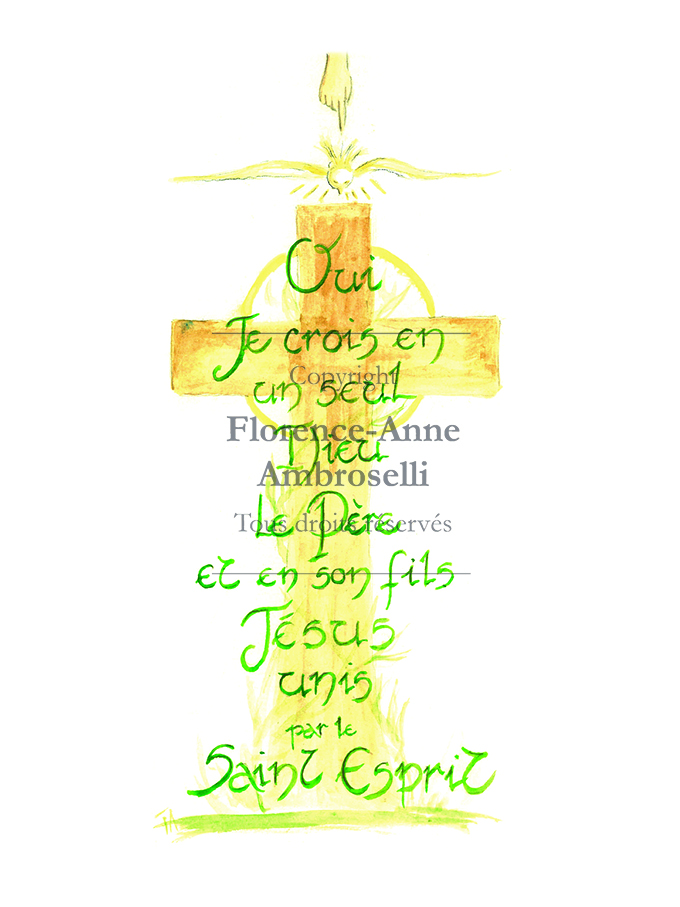 Oui
Je crois en
Copyright
un seul
Florence-Anne
Dieu
Ambroselli
Le Père
Tous droits réservés
et en son fils
Jésus
unis
par le
Saint Esprit
FA